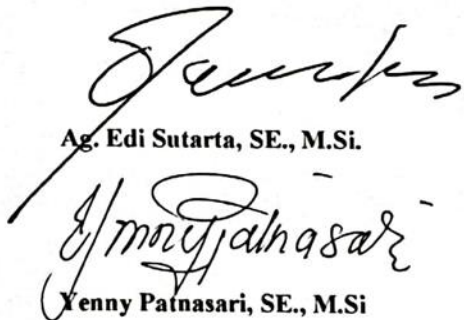 Ag. Edi Sutarta, SE., M.Si.
Yenny Patnasari, SE., M.Si